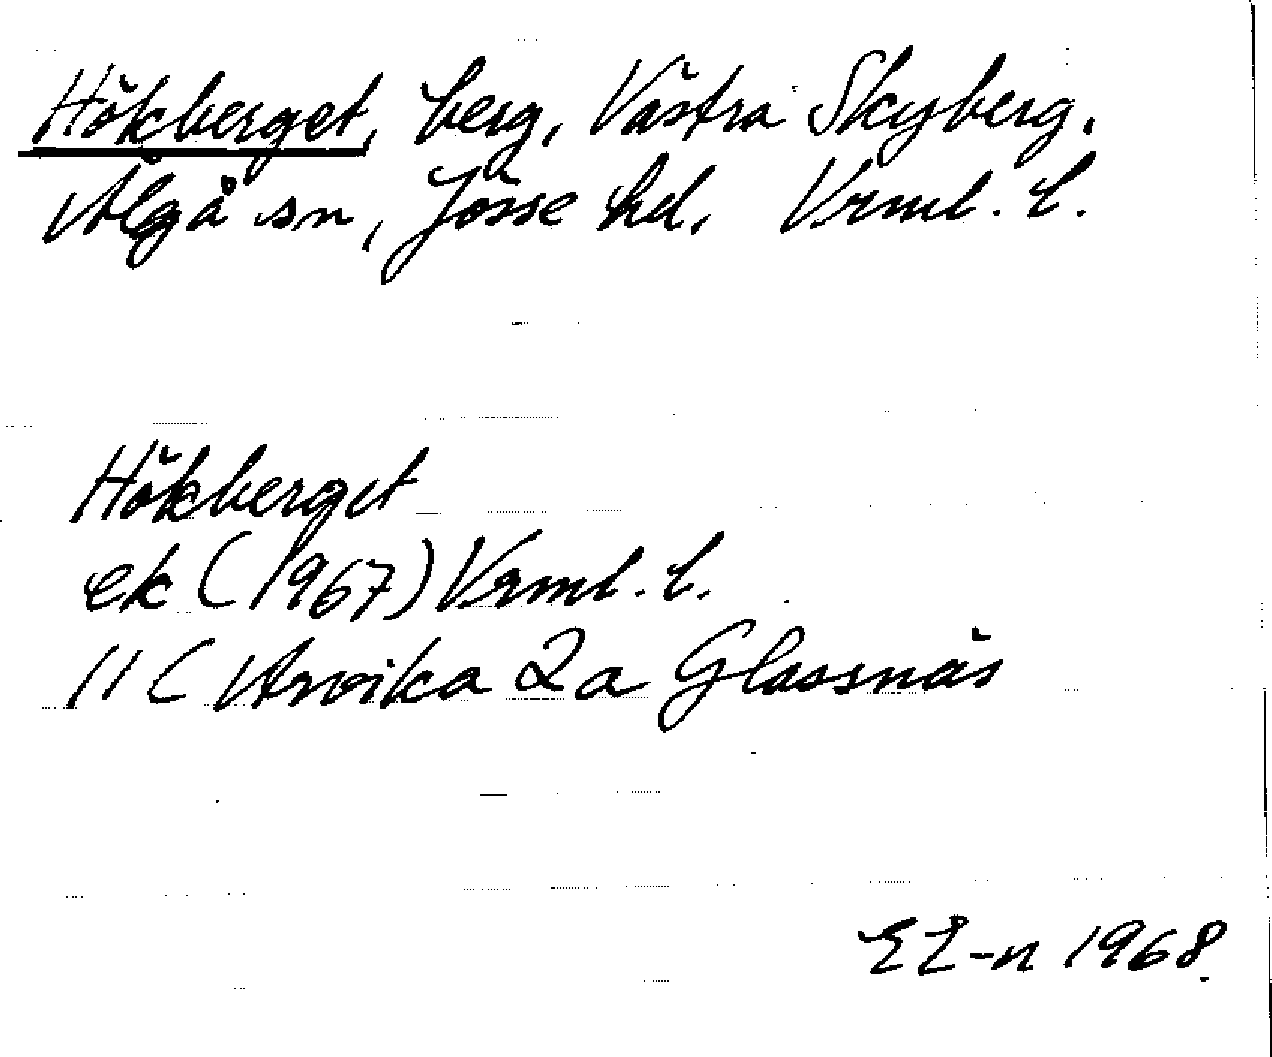 Hökberget, berg, Västra Skyberg,
Älgå sn, Jösse hd, Vrml. l.
Hökberget
ek (1967) Vrml. l.
11 C Arvika 2a Glassnäs
EL-n 1968